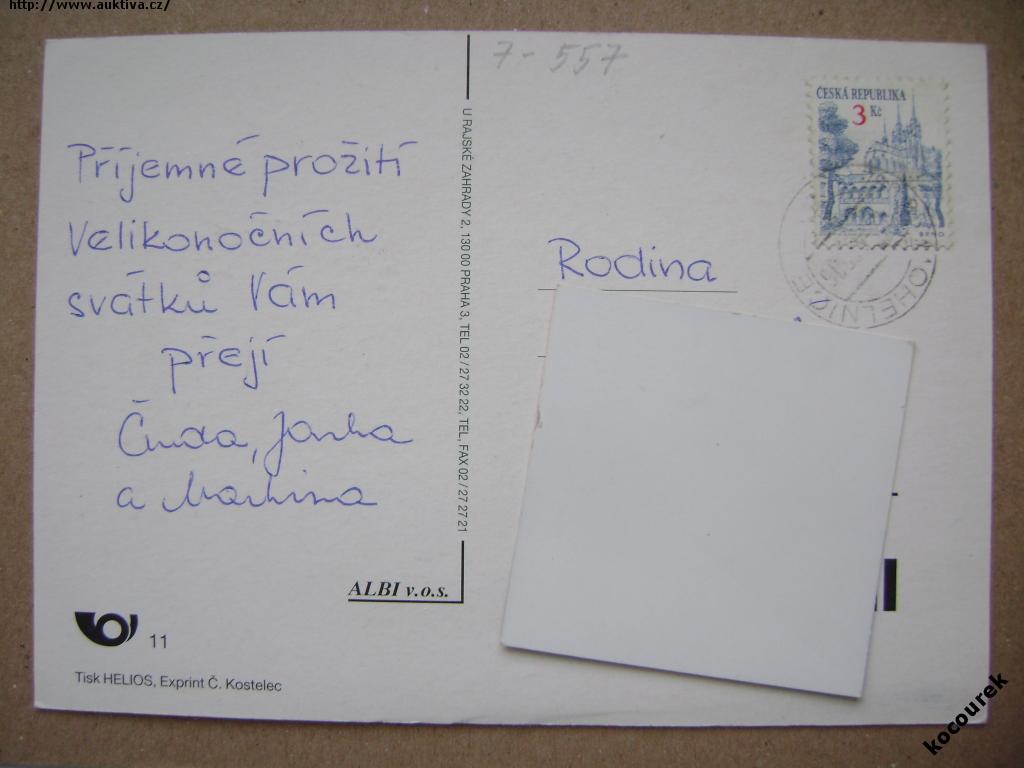 http://www.auktiva.cz/
7-557
ČESKÁ REPUBLIKA
3 Kč
BRNO
OHELNICE
Příjemné prožití
Velikonočních
svátků Vám
přejí
Čenda, Janka
a Martina
U RAJSKÉ ZAHRADY 2, 130 00 PRAHA 3, TEL 02 / 27 32 22, TEL, FAX 02 / 27 27 21
Rodina
ALBI v.o.s.
11
Tisk HELIOS, Exprint Č. Kostelec
kocourek